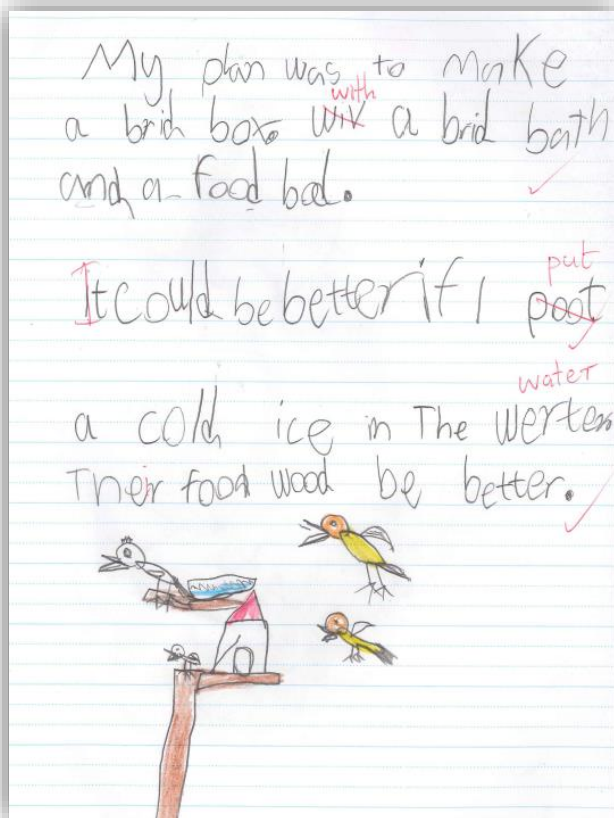 My plan was to make
with
a brid box. wik a brid bath
and a food bal.
put
It could be better if I poot
water
a cold ice in The werter
Their food wood be better.